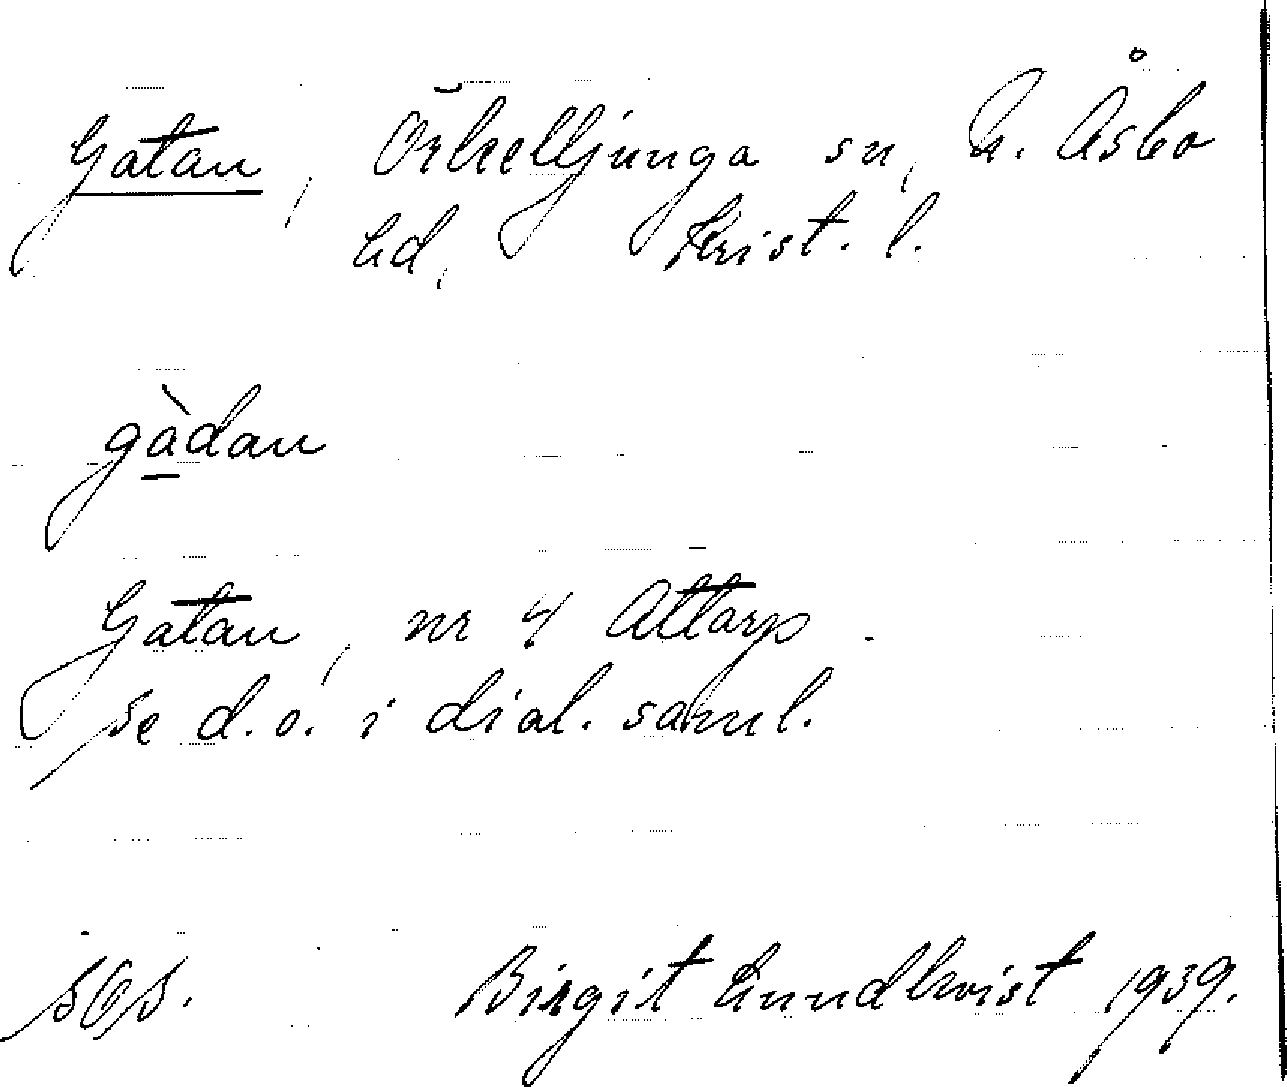 Gatan, Örkelljunga sn, N. Åsbo
hd, Krist. l.
gàdan
Gatan, nr 4 Attarp.
se d.o. i dial. saml.
Birgit Lundkvist 1939.